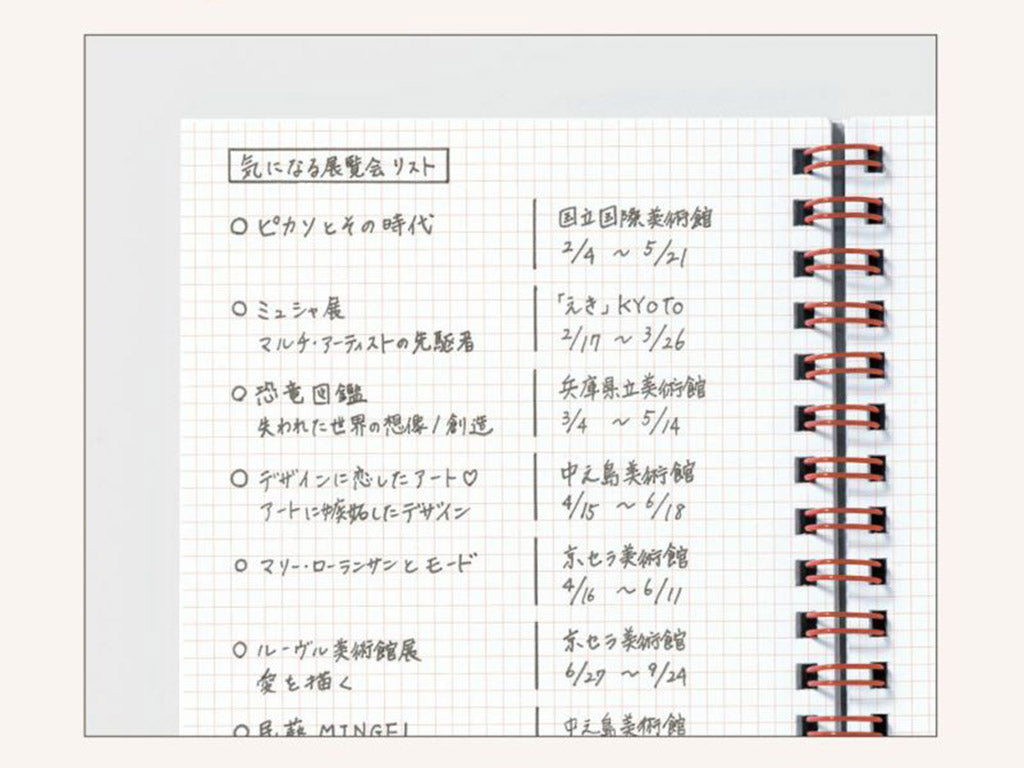 気になる展覧会リスト
○ ピカソとその時代
国立国際美術館
2/4 ～ 5/21
○ ミュシャ展
マルチ・アーティストの先駆者
「えき」KYOTO
2/17 ～ 3/26
○ 恐竜図鑑
失われた世界の想像/創造
兵庫県立美術館
3/4 ～ 5/14
○ デザインに恋したアート♡
アートに嫉妬したデザイン
中之島美術館
4/15 ～ 6/18
○ マリー・ローランサンとモード
京セラ美術館
4/16 ～ 6/11
○ ルーヴル美術館展
愛を描く
京セラ美術館
6/27 ～ 9/24
○ 民藝 MINGEI
中之島美術館